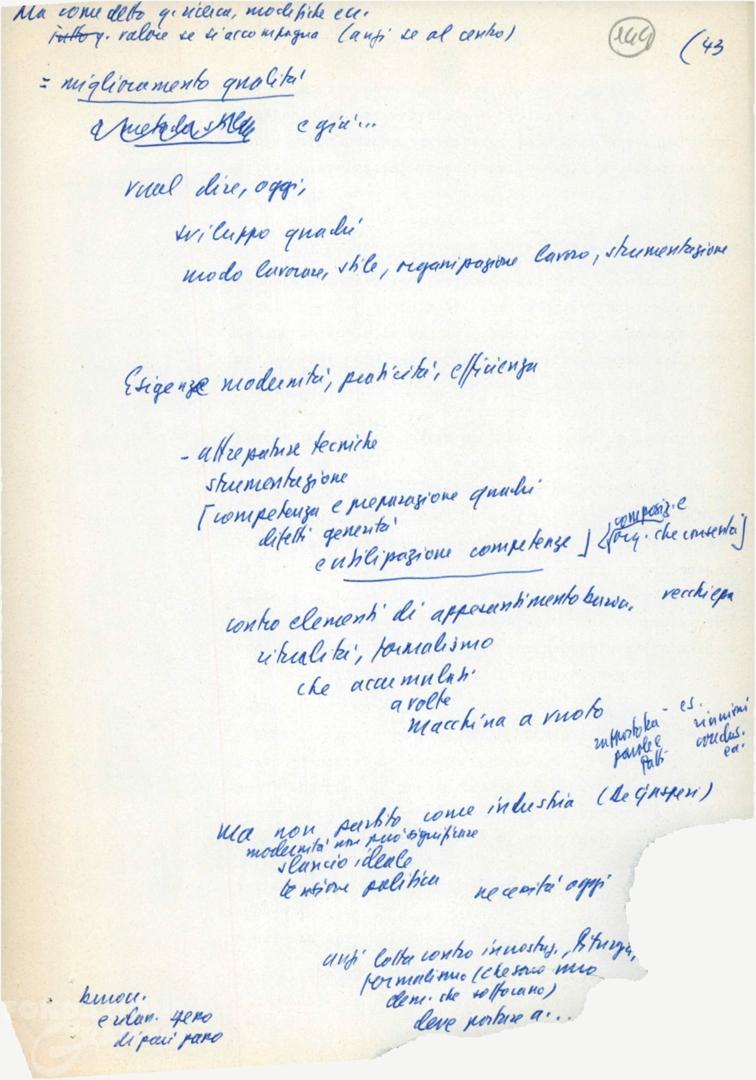 Ma come detto q. ricerca, modifiche ecc.
tutto q. valore se si accompagna (anzi se al centro)
149
(43
= miglioramento qualità
e già...
vuol dire, oggi,
sviluppo quadri
modo lavorare, stile, organizzazione lavoro, strumentazione
Esigenze modernità, praticità, efficienza
- attrezzature tecniche
strumentazione
[competenza e preparazione quadri
difetti generità
e utilizzazione competenze] composiz. e
org. che consenta]
contro elementi di appesantimento burocr. vecchiezza
ritualità, formalismo
che accumulati
a volte
macchina a vuoto
rapporto tra - es. riunioni
parole e conclus.
fatti ecc.
Ma non partito come industria (De Gasperi)
modernità non può significare
slancio ideale
tensione politica necessità oggi
anzi lotta contro incrostaz., liturgia,
formalismo (che sono
elem. che soffocano)
deve portare a...
buroc.
e rilan.
di pari passo